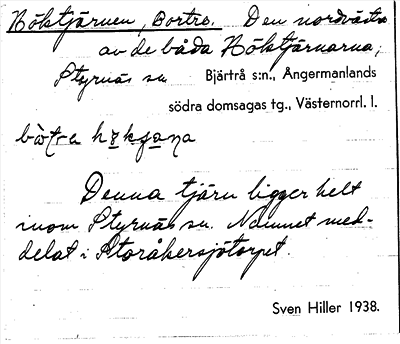 Höktjärnen, Bortre. Den nordvästra
av de båda Höktjärnarna;
Styrnäs sn. Bjärtrå s:n., Ångermanlands
södra domsagas tg., Västernorrl. l.
Denna tjärn ligger helt
inom Styrnäs sn. Namnet med-
delat i Storåkersjötorpet.
Sven Hiller 1938.